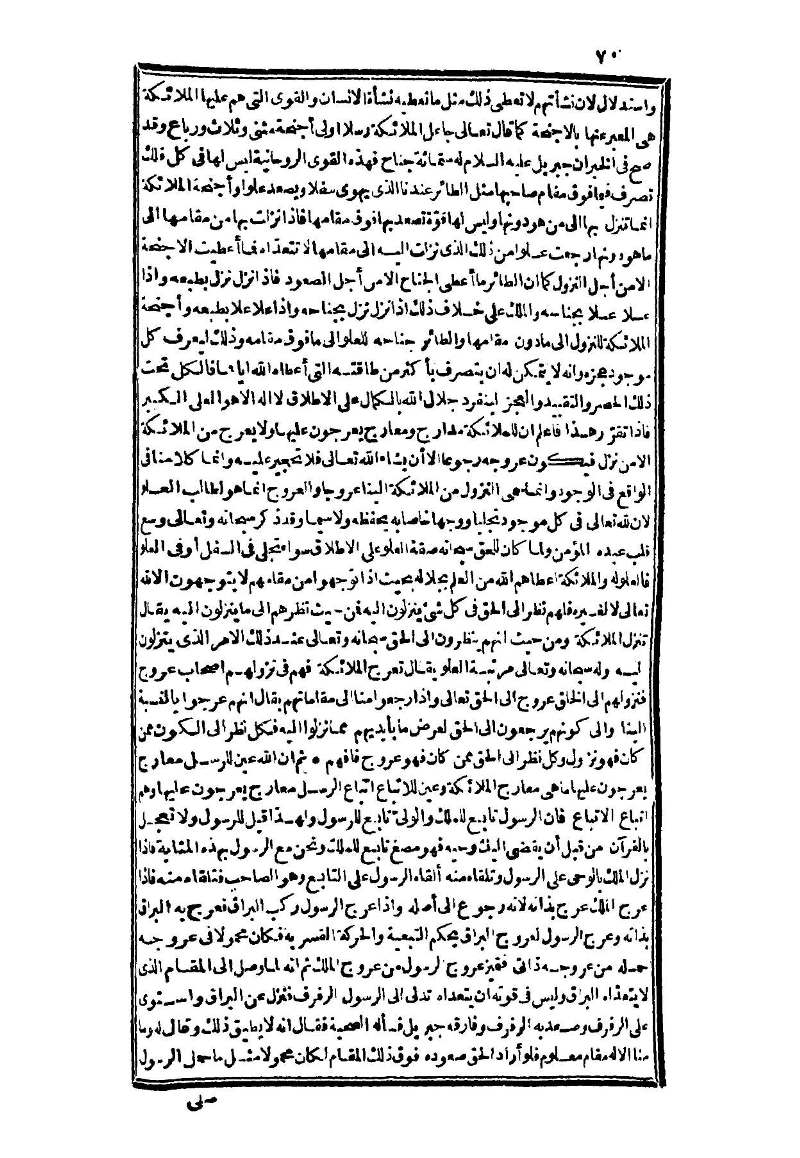 ٧٠
واستدلال لان نشأتهم لا تعطى ذلك مثل ما تعطيه نشأة الانسان والقوى التى هم عليها الملائكة
هى المعبر عنها بالاجنحة كما قال تعالى جاعل الملائكة رسلا اولى أجنحة مثنى وثلاث ورباع وقد
صح فى الخبر ان جبريل عليه السلام له ستمائة جناح فهذه القوى الروحانية ليس لها فى كل فلك
تصرف فيما فوق مقام صاحبها مثل الطائر عندنا الذى يهوى سفلا ويصعد علوا وأجنحة الملائكة
انما تنزل بها الى من هو دونها وليس لها قوة تصعد بها فوق مقامها فاذا نزلت بها من مقامها الى
ما هو دونها رجعت علوا من ذلك الذى نزلت اليه الى مقامها لا تتعداه فما أعطيت الاجنحة
الا من أجل النزول كما ان الطائر ما أعطى الجناح الا من أجل الصعود فاذا نزل نزل بطبعه واذا
علا علا بجناحه والملك على خلاف ذلك اذا نزل نزل بجناحه واذا علا علا بطبعه وأجنحة
الملائكة للنزول الى ما دون مقامها والطائر جناحه للعلو الى ما فوق مقامه وذلك ليعرف كل
موجود عجزه وانه لا يتمكن له ان يتصرف بأكثر من طاقته التى أعطاه الله اياها فالكل تحت
ذلك الحصر والتقييد والعجز لينفرد جلال الله بالكمال على الاطلاق لا اله الا هو العلى الكبير
فاذا تقرر هذا فاعلم ان للملائكة مدارج ومعارج يعرجون عليها ولا يعرج من الملائكة
الا من نزل فيكون عروجه رجوعا الا أن يشاء الله تعالى فلا تحجير عليه وانما كلامنا فى
الواقع فى الوجود وانما سمى النزول من الملائكة الينا عروجا والعروج انما هو لطالب العلو
لان لله تعالى فى كل موجود تجليا ووجها خاصا به يحفظه ولا سيما وقد ذكر سبحانه وتعالى وسع
قلب عبده المؤمن ولما كان للحق سبحانه صفة العلو على الاطلاق سواء تجلى فى السفل أو فى العلو
فالعلو له والملائكة اعطاهم الله من العلم بجلاله بحيث اذا توجهوا من مقامهم لا يتوجهون الا لله
تعالى لا لغيره فلهم نظر الى الحق فى كل شئ ينزلون اليه فمن حيث نظرهم الى ما ينزلون اليه يقال
تنزل الملائكة ومن حيث انهم ينظرون الى الحق سبحانه وتعالى عند ذلك الامر الذى يتنزلون
ليه وله سبحانه وتعالى مرتبة العلو يقال تعرج الملائكة فهم فى نزولهم اصحاب عروج
فنزولهم الى الخلق عروج الى الحق تعالى واذا رجعوا منا الى مقاماتهم يقال انهم عرجوا بالنسبة
الينا والى كونهم يرجعون الى الحق لعرض ما بأيديهم مما نزلوا اليه فكل نظر الى الكون ممن
كان فهو نزول وكل نظر الى الحق ممن كان فهو عروج فافهم * ثم ان الله عين للرسل معارج
يعرجون عليها ما هى معارج الملائكة وعين للاتباع اتباع الرسل معارج يعرجون عليها وهم
اتباع الاتباع فان الرسول تابع للملك والولى تابع للرسول ولهذا قيل للرسول ولا تعجل
بالقرآن من قبل أن يقضى اليك وحيه فهو مصغ تابع للملك ونحن مع الرسول بهذه المثابة فاذا
نزل الملك بالوحى على الرسول وتلقاه منه ألقاه الرسول على التابع وهو الصاحب فتلقاه منه فاذا
عرج الملك عرج بذاته لانه رجوع الى أصله واذا عرج الرسول ركب البراق فعرج به البراق
بذاته وعرج الرسول لعروج البراق بحكم التبعية والحركة القسرية فكان محمولا فى عروجه
حمله من عروجه ذاتى فتميز عروج الرسول من عروج الملك ثم انه لما وصل الى المقام الذى
لا يتعداه البراق وليس فى قوته ان يتعداه تدلى الى الرسول الرفرف فنزل عن البراق واستوى
على الرفرف وصعد به الرفرف وفارقه جبريل فسأله الصحبة فقال انه لا يطيق ذلك وقال له وما
منا الا له مقام معلوم فلو أراد الحق صعوده فوق ذلك المقام لكان محمولا مثل ما حمل الرسول
صلى